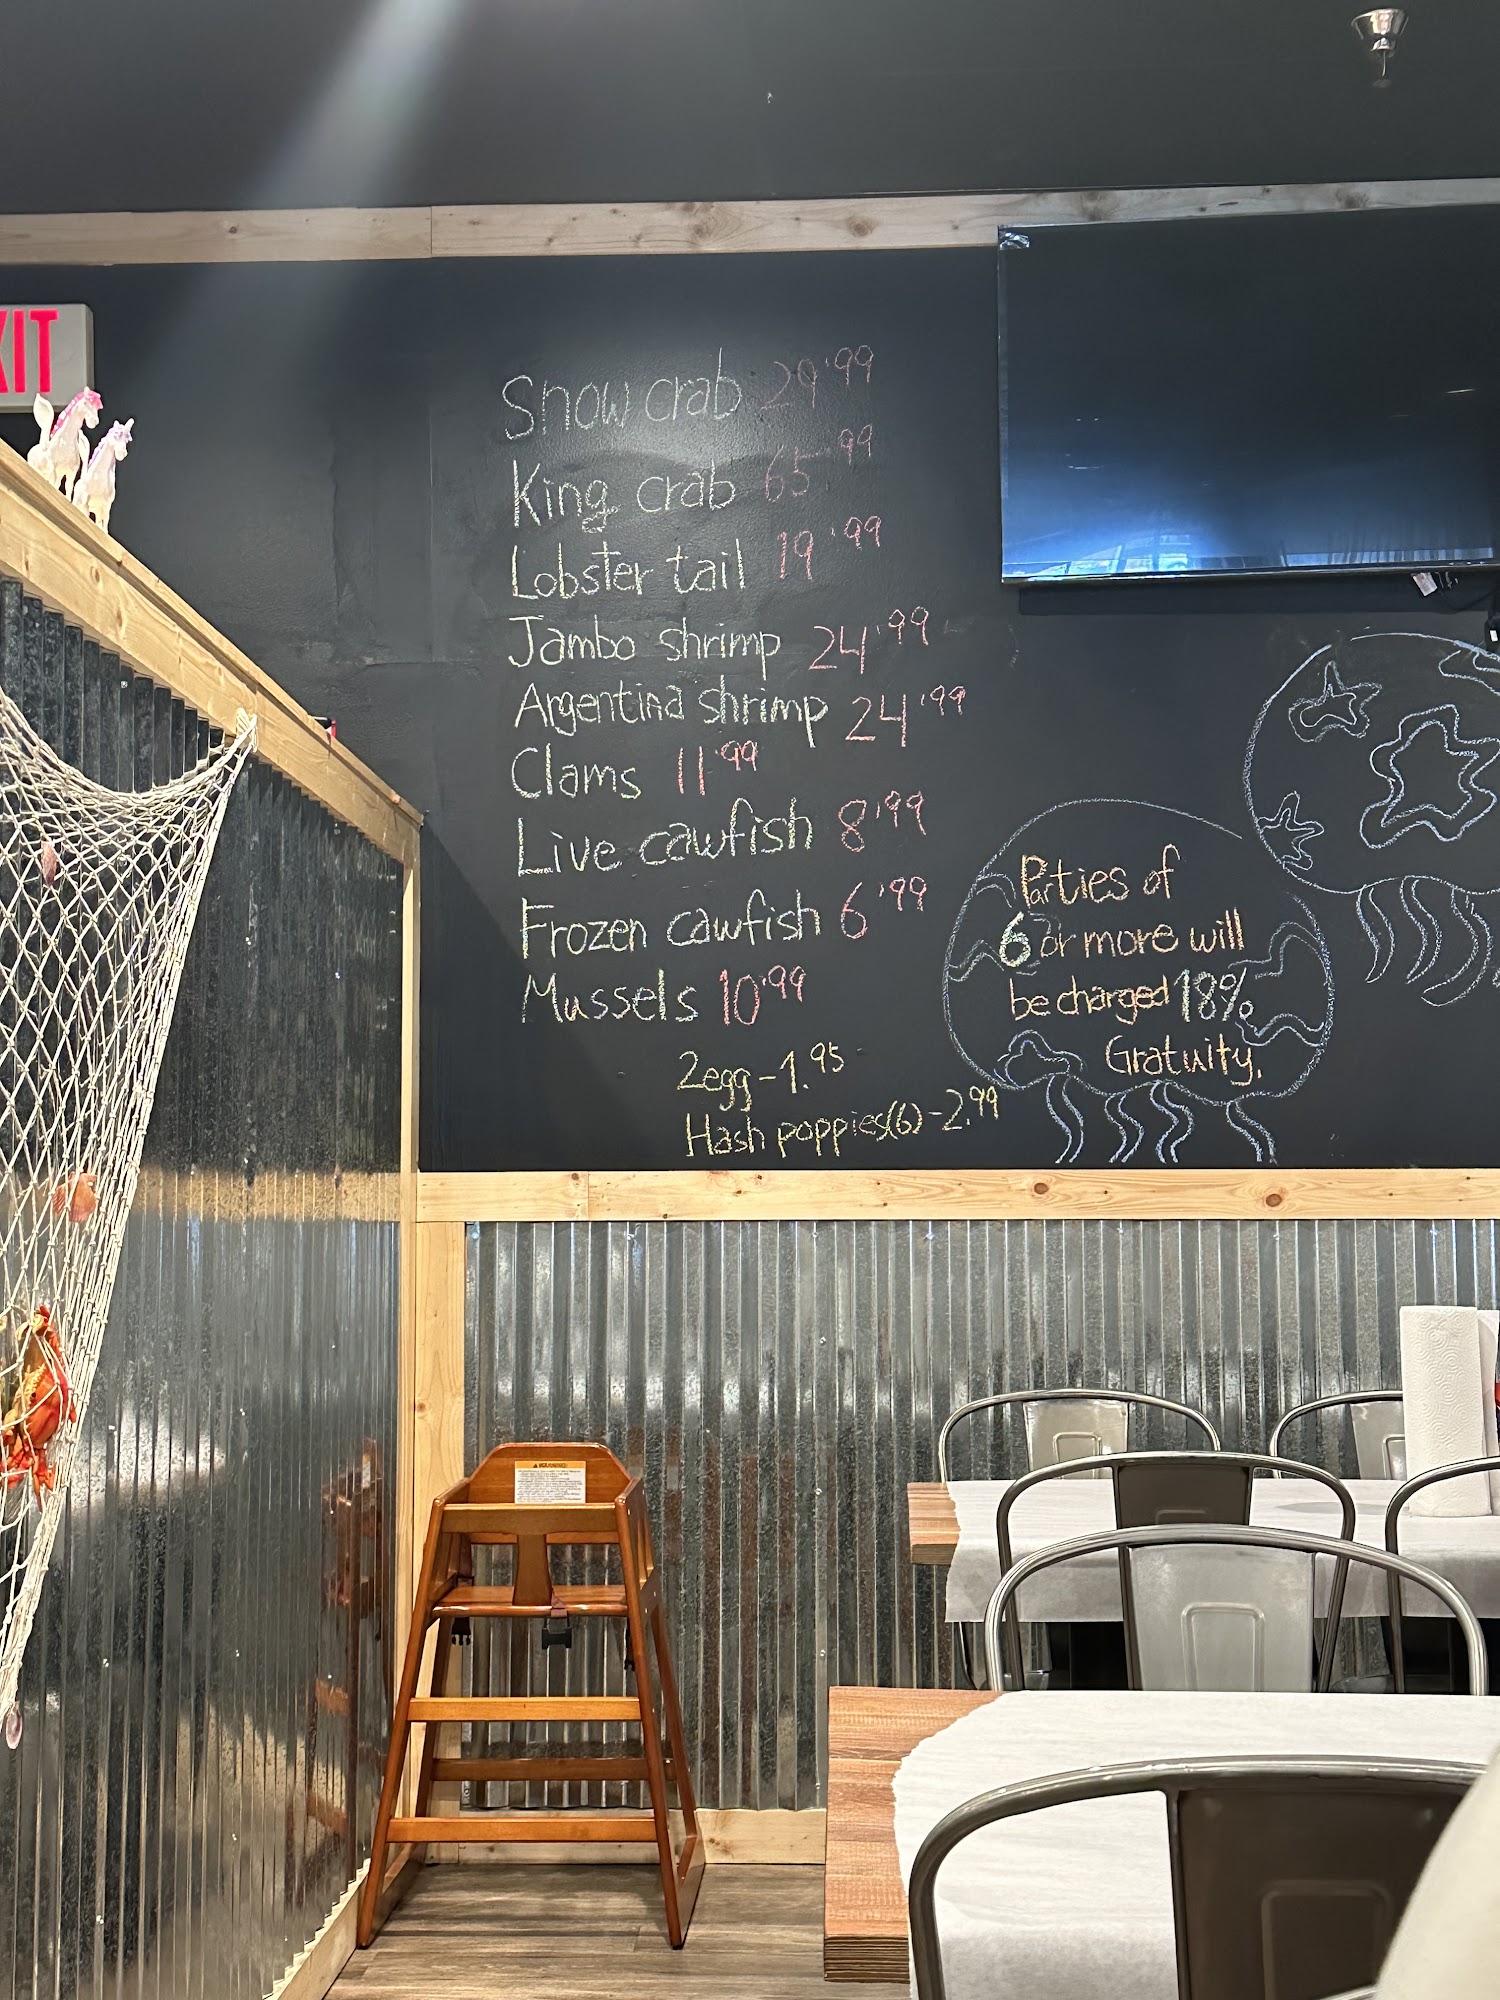 XIT
Snow crab 29.99
King crab 65.99
Lobster tail 19.99
Jambo shrimp 24.99
Argentina shrimp 24.99
Clams 11.99
Live cawfish 8.99
Frozen cawfish 6.99
Mussels 10.99
2egg-1.95
Hash poppies(6)-2.99
Parties of
6 or more will
be charged 18%
Gratuity.
WARNING